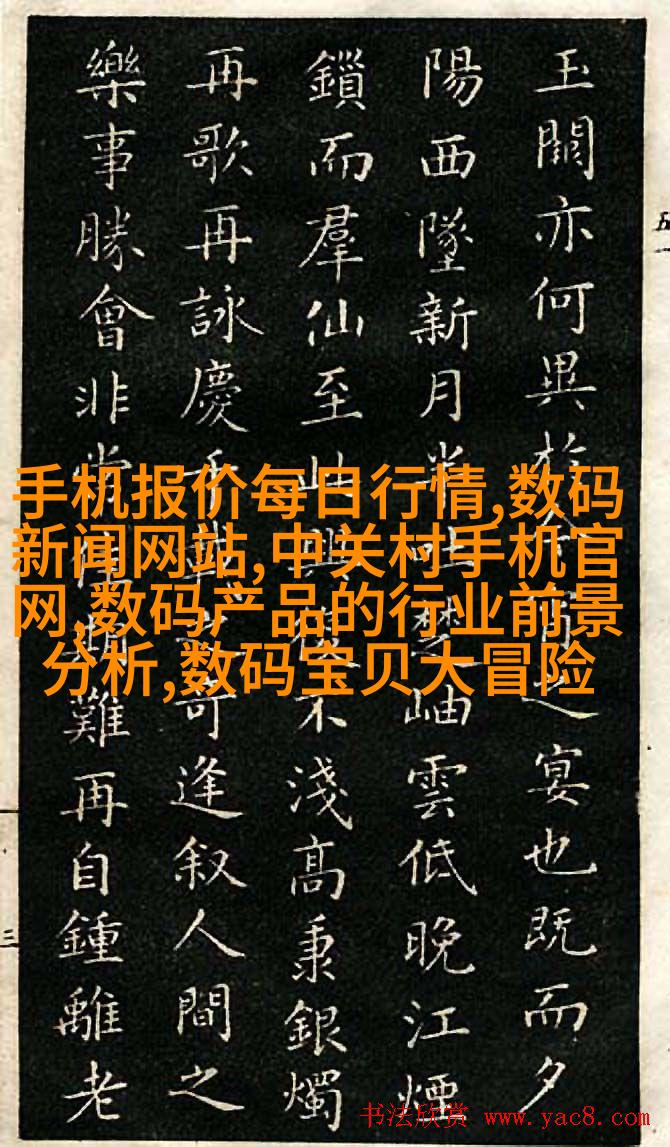 玉闕亦何異於之宴也既而夕
陽西墜新月半吐楚岫雲低晚江煙
鎖而羣仙至此興復不淺高秉銀燭
再歌再詠慶千載之奇逢叙人間之
樂事勝會非常難再自鍾離老
手机报价每日行情,数码
新闻网站,中关村手机官
网,数码产品的行业前景
分析,数码宝贝大冒险
五
三
书法欣赏 www.yac8.com